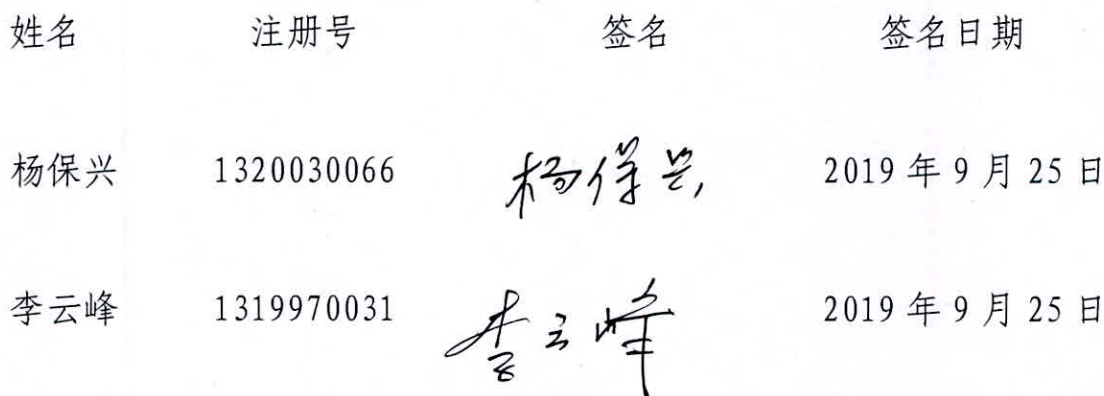 姓名 注册号 签名 签名日期
杨保兴 1320030066 杨保兴 2019年9月25日
李云峰 1319970031 李云峰 2019年9月25日